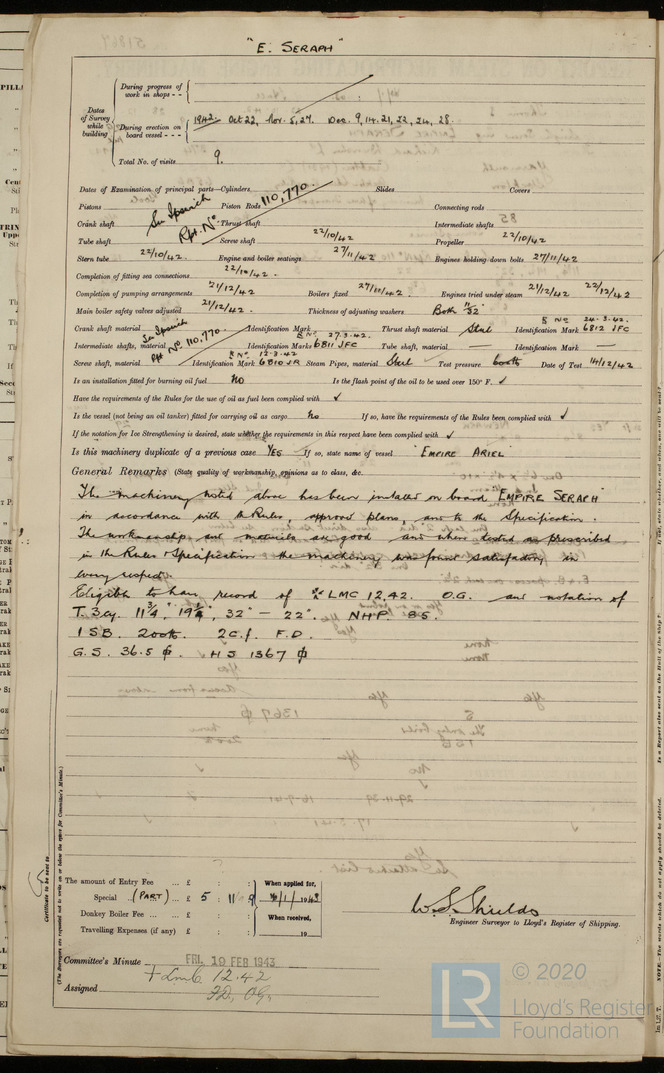 "E. SERAPH"
Dates of Survey while building
During progress of work in shops - -
During erection on board vessel - - - 1942. Oct 22, Nov. 5, 27. Dec. 9, 14, 21, 22, 24, 28.
Total No. of visits 9.
Dates of Examination of principal parts—Cylinders Slides Covers
Pistons Piston Rods Connecting rods
See Ipswich Rpt. No. 110,770.
Crank shaft Thrust shaft Intermediate shafts
Tube shaft Screw shaft 22/10/42 Propeller 22/10/42
Stern tube 22/10/42. Engine and boiler seatings 27/11/42 Engines holding down bolts 27/11/42
Completion of fitting sea connections 22/10/42.
Completion of pumping arrangements 21/12/42 Boilers fixed 27/11/42. Engines tried under steam 21/12/42 22/12/42
Main boiler safety valves adjusted 21/12/42. Thickness of adjusting washers Both 11/32"
Crank shaft material See Ipswich Rpt No 110,770. Identification Mark Thrust shaft material Steel Identification Mark No 24.3.42. 6812 JFC
Intermediate shafts, material Identification Marks No 27.3.42. 6811 JFC Tube shaft, material Identification Mark —
Screw shaft, material Identification Mark No 12.3.42 6810 JR Steam Pipes, material Steel Test pressure Date of Test 14/12/42
Is an installation fitted for burning oil fuel No Is the flash point of the oil to be used over 150° F. ✓
Have the requirements of the Rules for the use of oil as fuel been complied with ✓
Is the vessel (not being an oil tanker) fitted for carrying oil as cargo. No If so, have the requirements of the Rules been complied with ✓
If the notation for Ice Strengthening is desired, state whether the requirements in this respect have been complied with ✓
Is this machinery duplicate of a previous case YES If so, state name of vessel "EMPIRE ARIEL"
General Remarks (State quality of workmanship, opinions as to class, &c.
The machinery noted above has been installed on board "EMPIRE SERAPH"
in accordance with the Rules, approved plans, and to the Specification.
The workmanship and materials are good and when tested as prescribed
in the Rules & Specification the machinery was found satisfactory in
every respect.
Eligible to have record of LMC 12,42. O.G. and notation of
T. 3cy. 11¾", 19¾", 32" — 22". NHP. 85.
1 S.B. 200 lb. 2 C.f. F.D.
G.S. 36.5 HS 1367
The amount of Entry Fee ... £ : :
Special (PART) ... £ 5 : 11 : 9
Donkey Boiler Fee ... ... £ : :
Travelling Expenses (if any) £ : :
When applied for,
When received,
19
W. S. Shields
Engineer Surveyor to Lloyd's Register of Shipping.
Committee's Minute FRI. 19 FEB 1943
+ Lmb 12.42
Assigned F.D, O.G.
Certificate to be sent to
(The Surveyors are requested not to write on or below the space for Committee's Minute.)
© 2020
LR
Lloyd's Register
Foundation